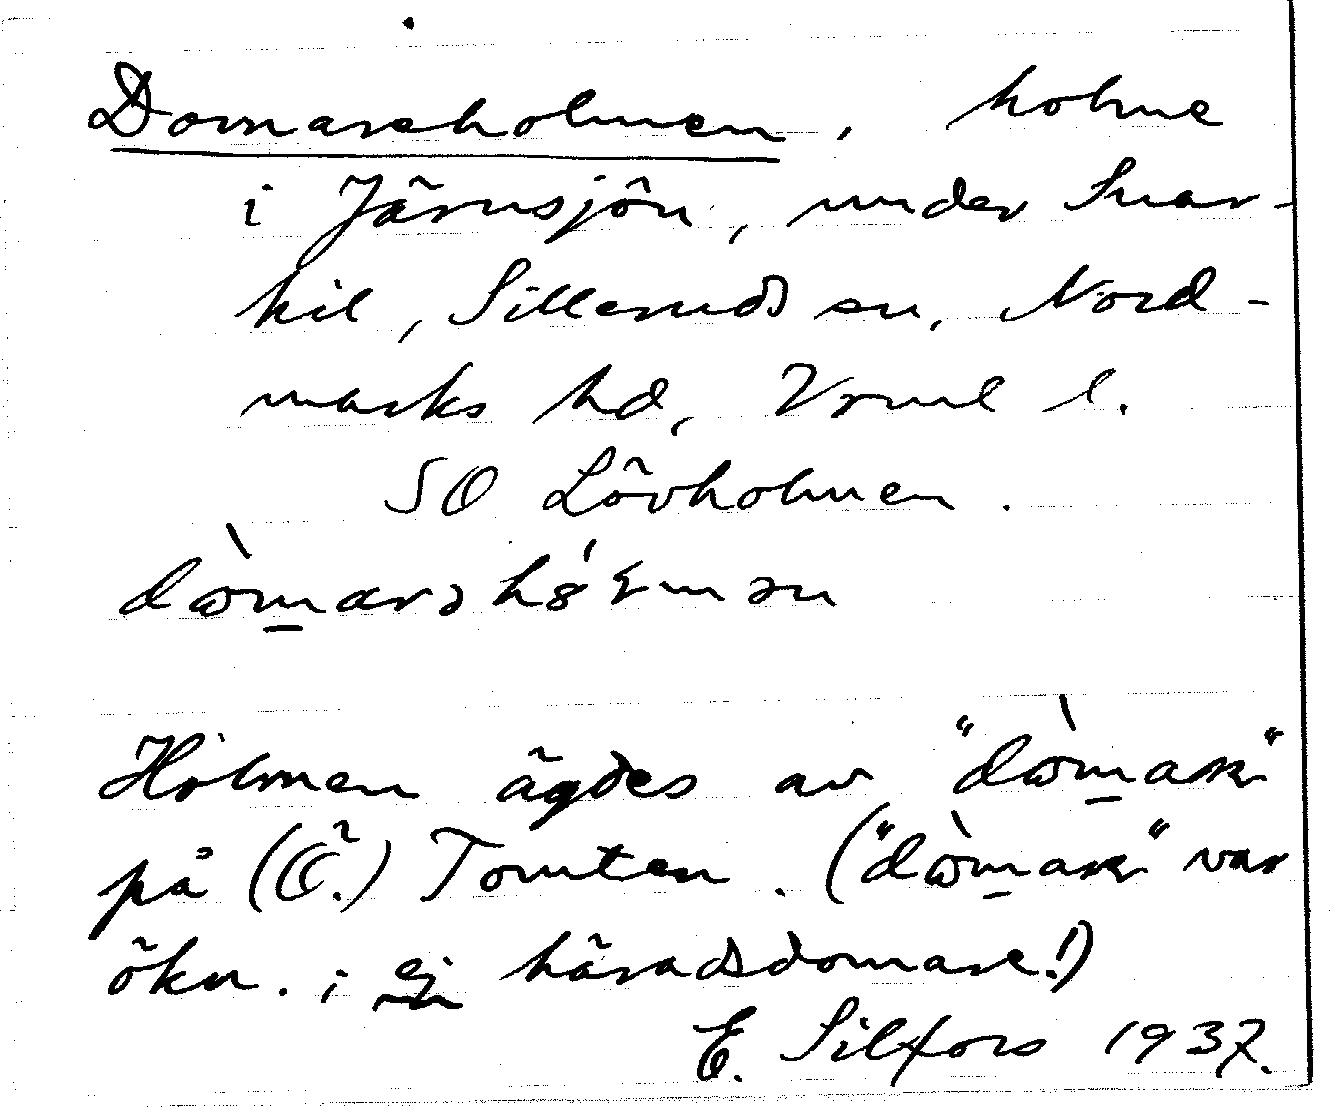 Domareholmen, holme
i Järnsjön, under Snar-
kil, Silleruds sn, Nord-
marks hd, Vrml l.
SO Lövholmen.
Holmen ägdes av
på (Ö.) Tomten. ( var
ökn. ; ej häradsdomare!)
E. Silfors 1937.